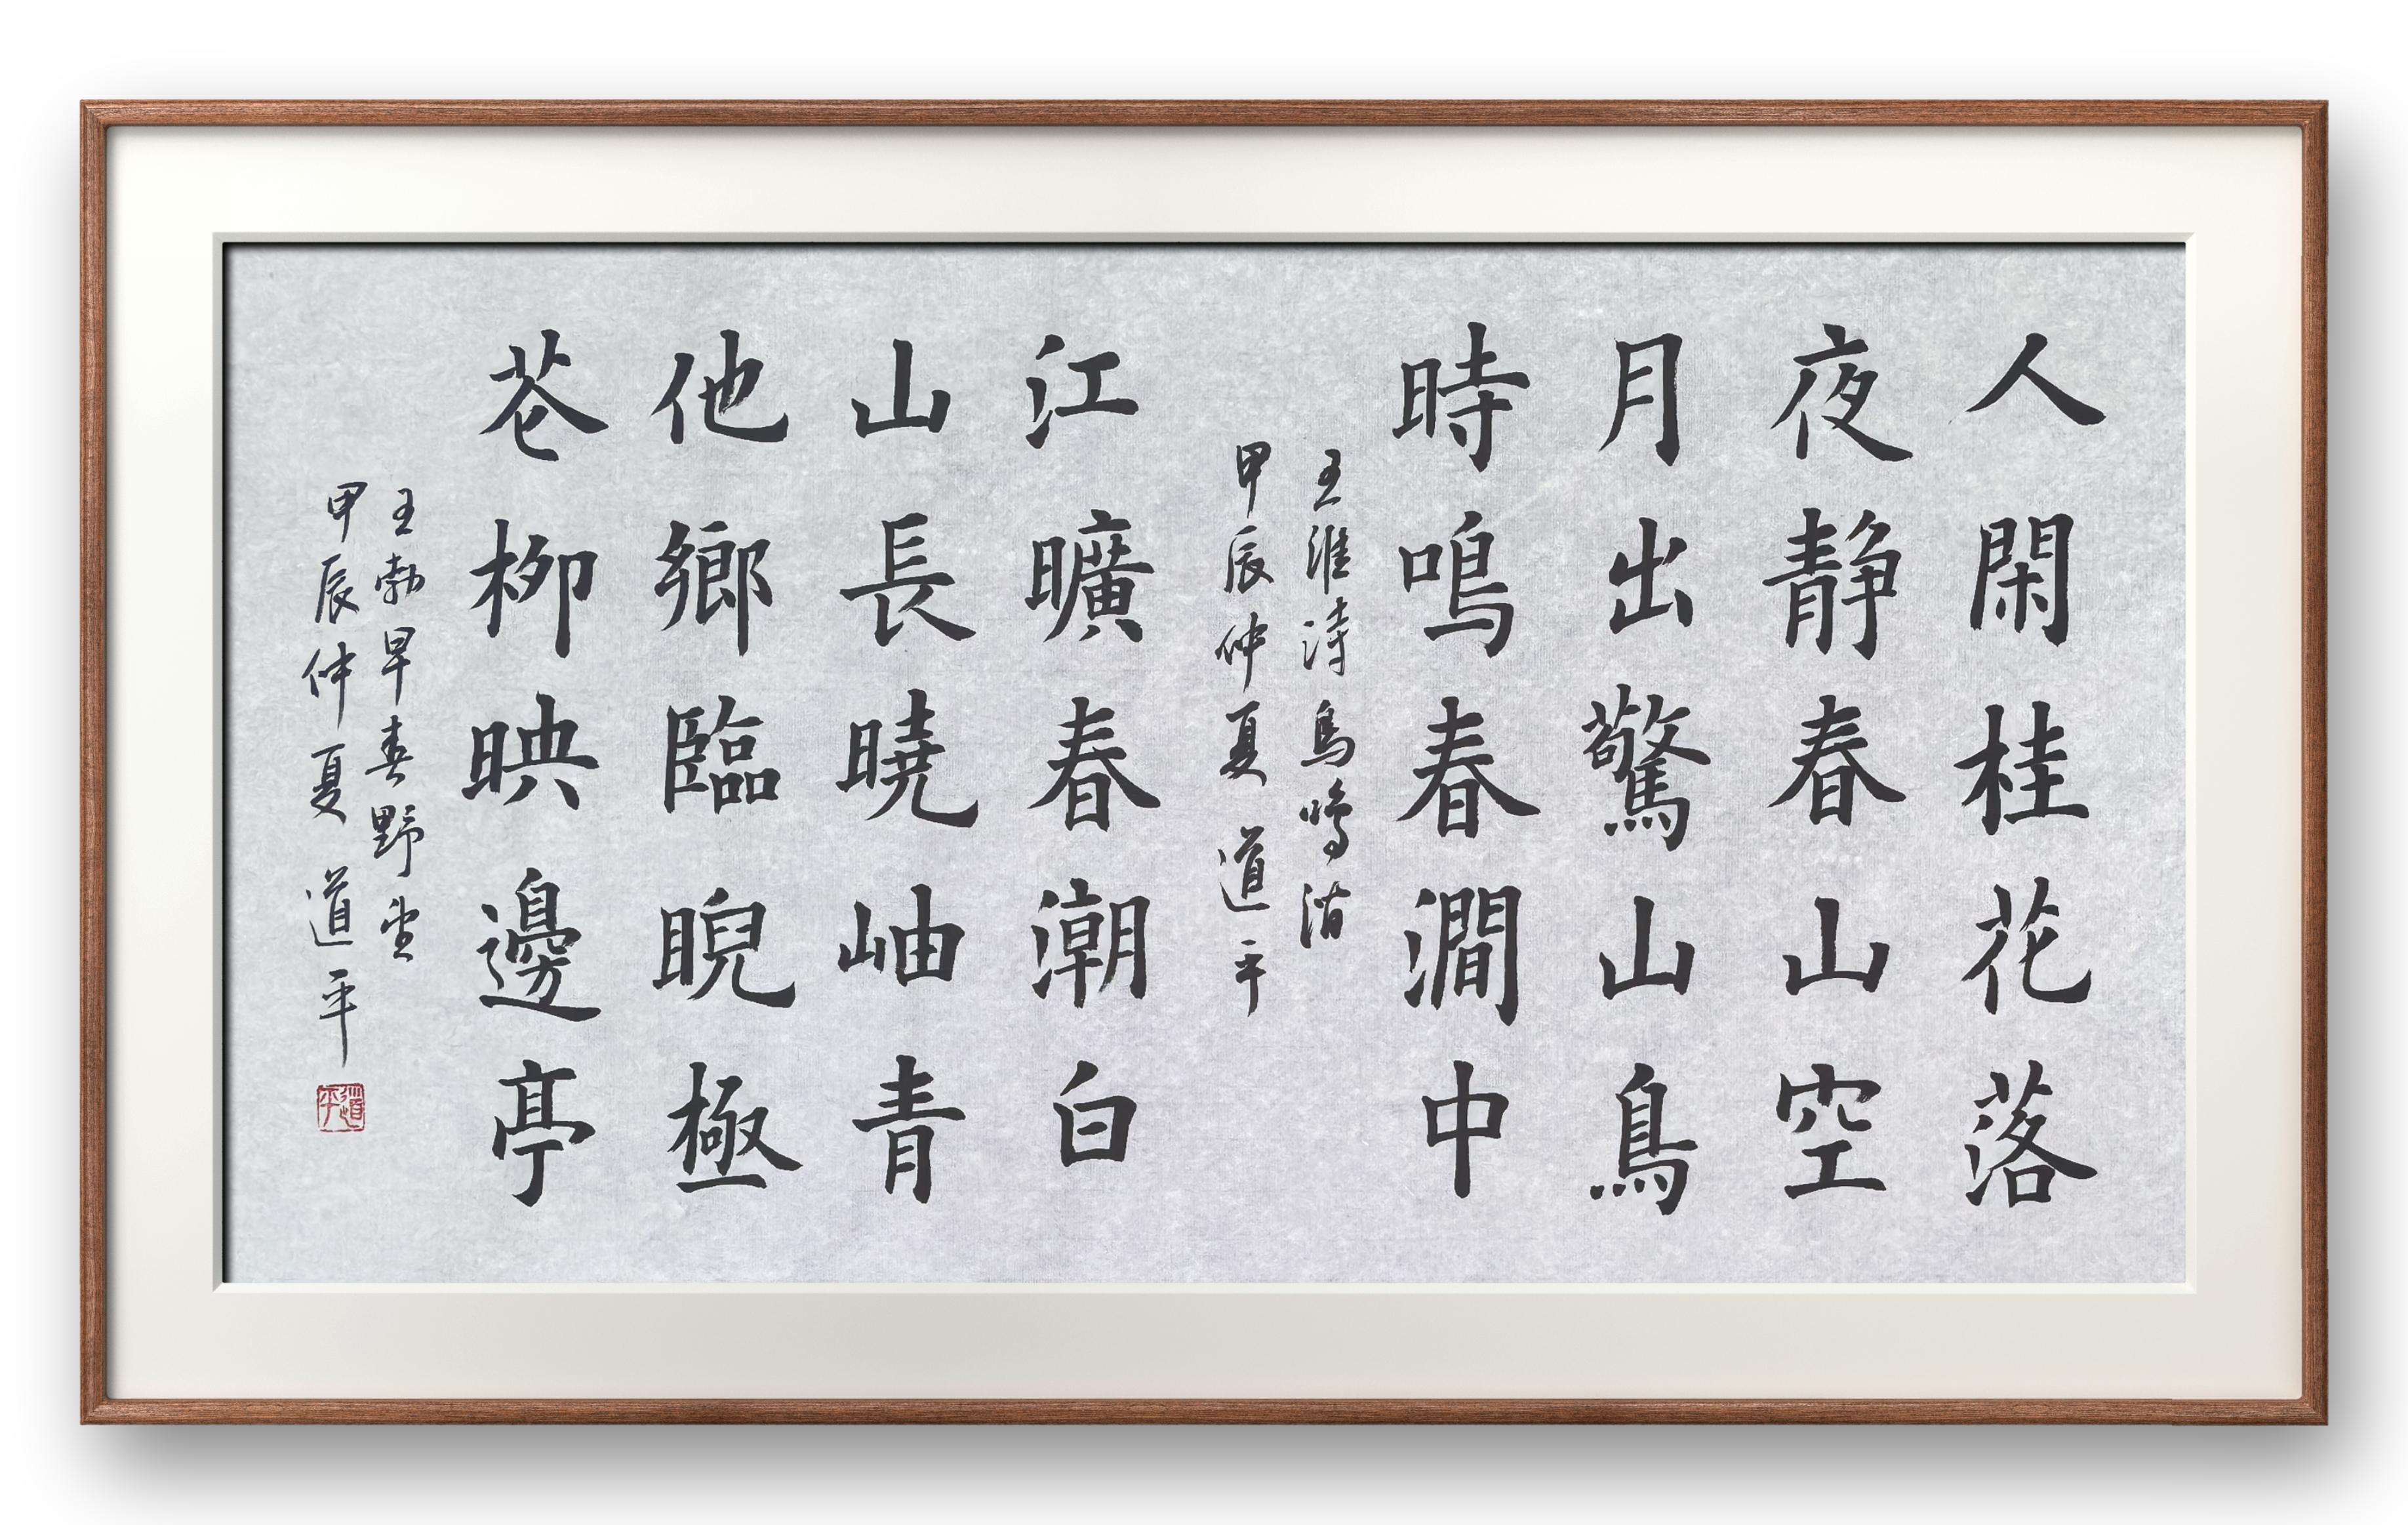 人閑桂花落
夜静春山空
月出驚山鳥
時鳴春澗中
王維詩鳥鳴澗
甲辰仲夏道平
江曠春潮白
山長曉岫青
他鄉臨睨極
苍柳映邊亭
王勃早春野望
甲辰仲夏道平
道平